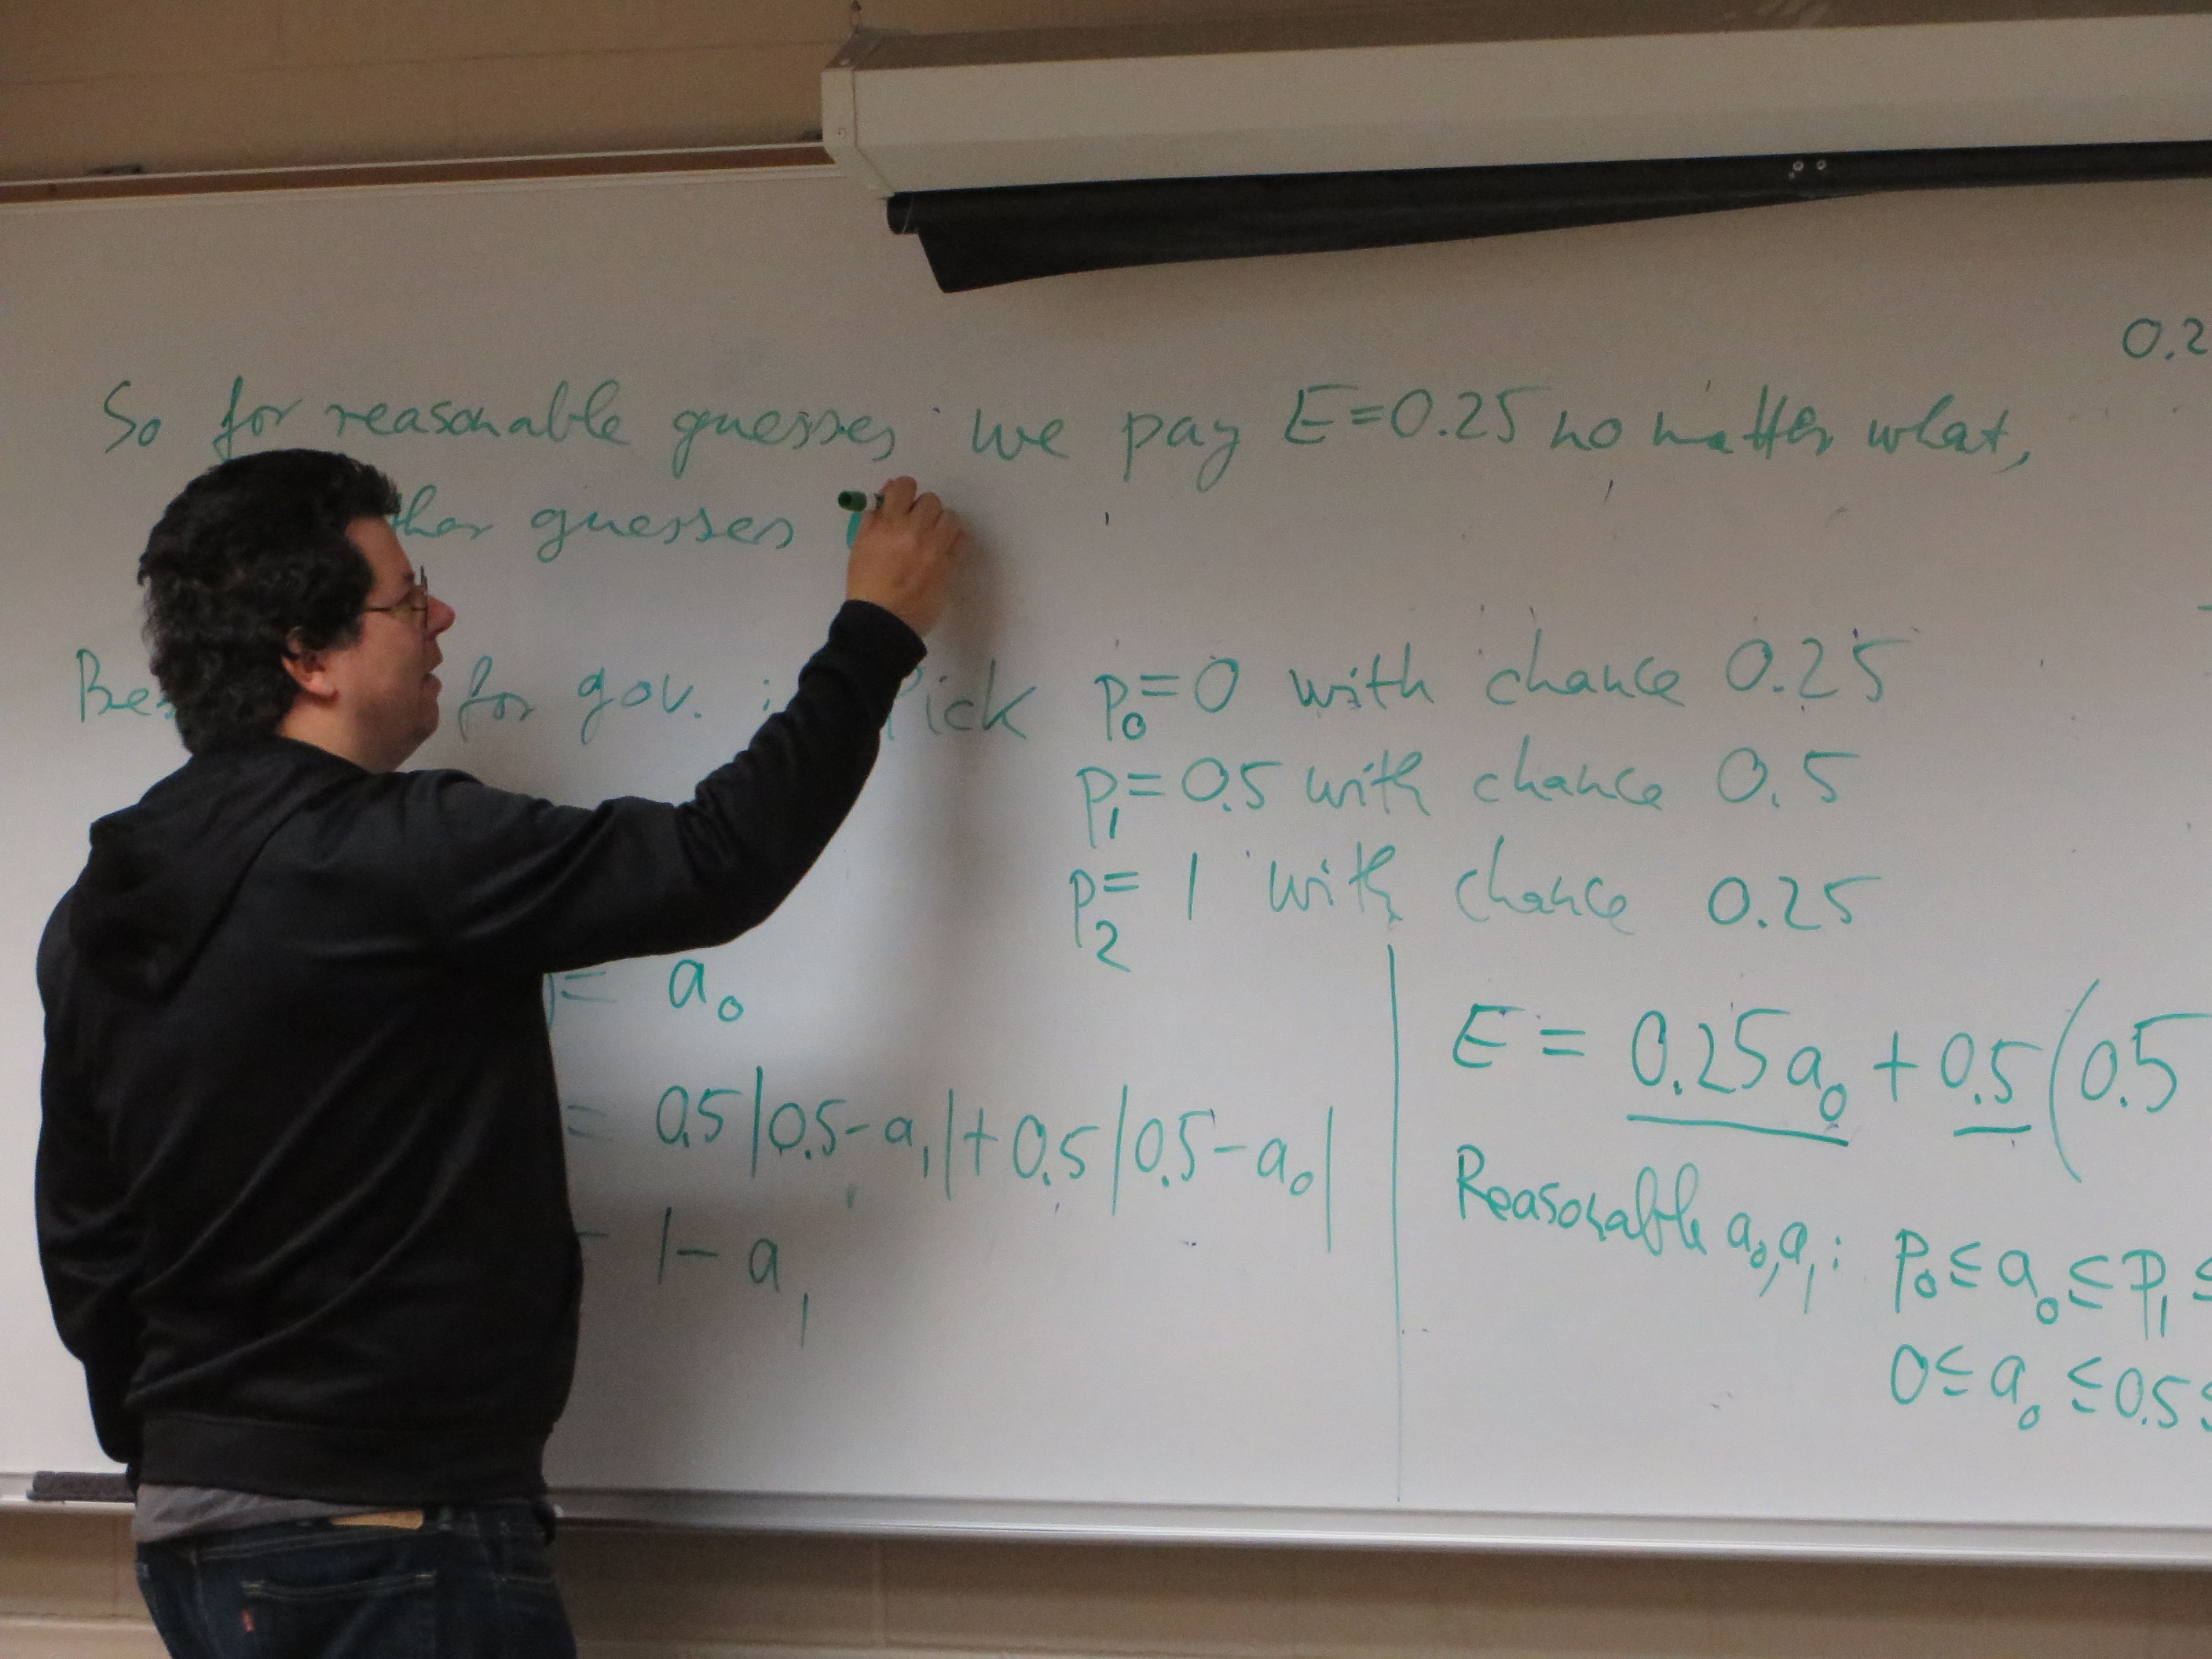 0.2
So for reasonable guesses we pay E=0.25 no matter what,
guesses
for gov. : Pick p₀=0 with chance 0.25
p₁=0.5 with chance 0.5
p₂=1 with chance 0.25
= a₀
= 0.5|0.5-a₁|+0.5|0.5-a₀|
1-a₁
E = 0.25a₀ + 0.5(0.5
Reasonable a₀,a₁: p₀≤a₀≤p₁≤
0≤a₀≤0.5≤